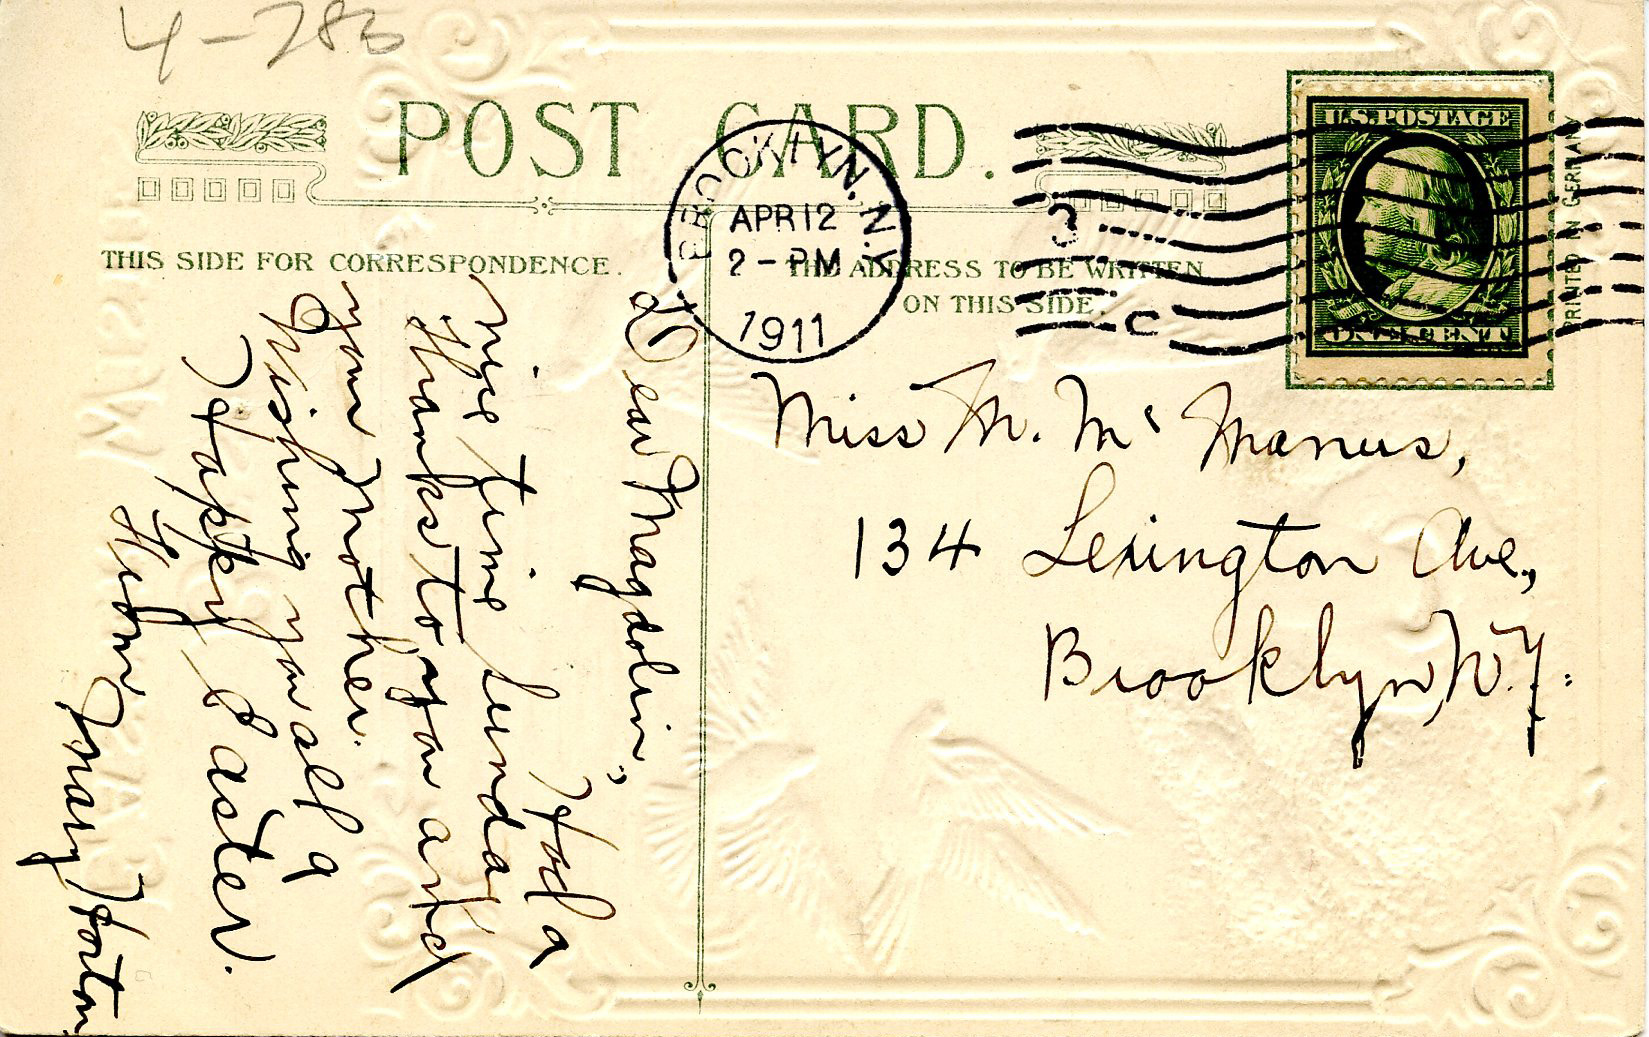 4-285
POST CARD.
BROOKLYN, N.Y.
APR 12
2-PM
1911
3
C
U.S. POSTAGE
ONE CENT
PRINTED IN GERMANY
THIS SIDE FOR CORRESPONDENCE.
THE ADDRESS TO BE WRITTEN
ON THIS SIDE.
Dear Magdolin,
Had a
nice time Sunday
thanks to you and
your mother.
Wishing you all a
Happy Easter.
From
Mary Horton
Miss M. Mc Manus,
134 Lexington Ave.,
Brooklyn, N.Y.